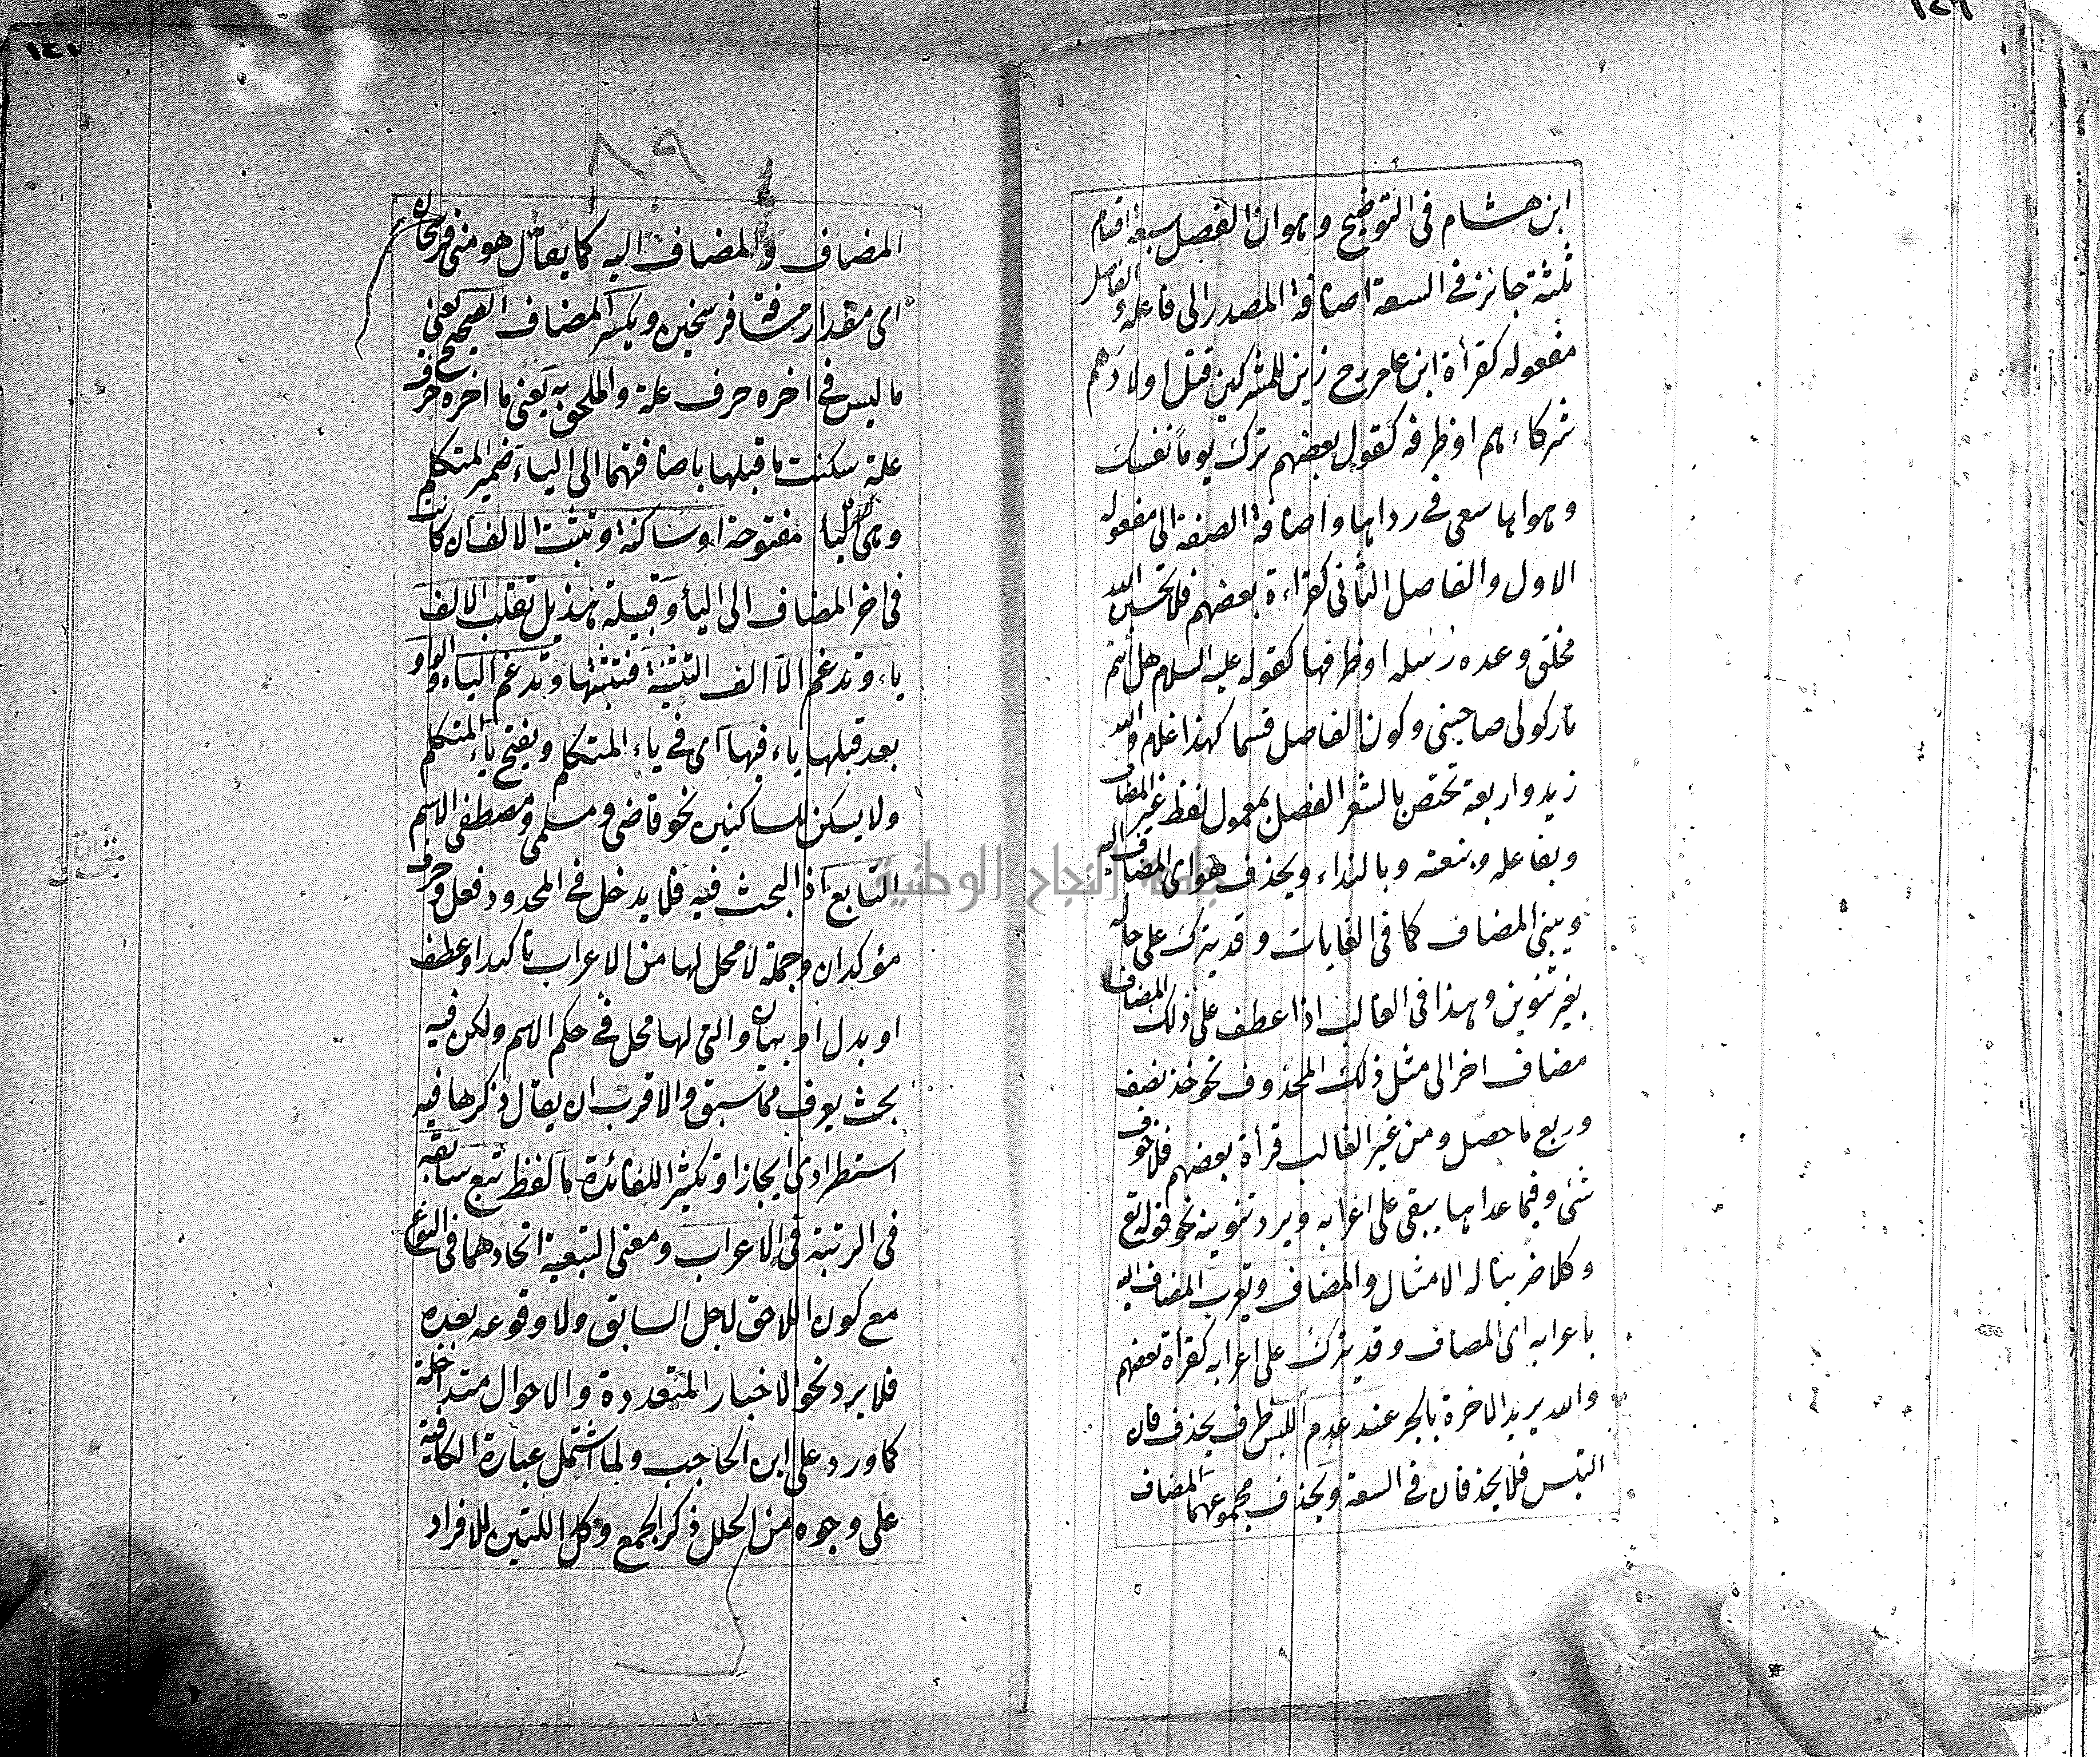 ١٤٦
ابن هشام فى التوضيح وهو ان الفصل سبعة اقسام
ثلثة جائز فى السعة اضافة المصدر الى فاعله والفاصل
مفعوله كقرأة ابن عامر رح زين للمشركين قتل اولادهم
شركاءهم او ظرفه كقول بعضهم ترك يوما نفسك
وهواها سعى فى رداها واضافة الصفة الى مفعوله
الاول والفاصل الثانى كقراءة بعضهم فلا تحسبن الله
مخلف وعده رسله او ظرفها كقوله عليه السلام هل انتم
تاركو لى صاحبى وكون الفاصل قسما كهذا غلام والله
زيد واربعة تختص بالشعر الفصل بمعمول لفظ غير المضاف
وبفاعله وبنعته وبالنداء ويحذف هو اى المضاف اليه
ويبنى المضاف كما فى الغايات وقد يترك على حاله
بغير تنوين وهذا فى الغالب اذا عطف على ذلك المضاف
مضاف اخر الى مثل ذلك المحذوف نحو خذ نصف
وربع ما حصل ومن غير الغالب قرأة بعضهم فلا خوف
شئ وفيما عداها يبقى على اعرابه ويرد تنوينه نحو قوله تع
وكلا ضربنا له الامثال والمضاف ويعرب المضاف اليه
باعرابه اى المضاف وقد يترك على اعرابه كقرأة بعضهم
والله يريد الاخرة بالجر عند عدم اللبس يحذف فان
التبس فلا يحذفان فى السعة ويحذف مجموعهما المضاف
٨٩
المضاف والمضاف اليه كما يقال هو منى فرسخان
اى مقدار مسافة فرسخين ويكسر المضاف الصحيح يعنى
ما ليس فى اخره حرف علة والملحق به يعنى ما اخره حرف
علة سكنت ما قبلها باضافتهما الى الياء ضمير المتكلم
وهى اى الياء مفتوحة او ساكنة وتثبت الالف ان كانت
فى اخر المضاف الى الياء وقبيلة هذيل تقلب الالف
ياء وتدغم الا الف التثنية فتثبتها وتدغم الياء والواو
بعد قبلها ياء فيها اى فى ياء المتكلم ويفتح ياء المتكلم
ولا يسكن للساكنين نحو قاضى ومسلمى ومصطفى الاسم
التابع اذ البحث فيه فلا يدخل فى المحدود فعل وحرف
مؤكدان وجملة لا محل لها من الاعراب تاكيدا وعطف
او بدل او بيان والتى لها محل فى حكم الاسم ولكن فيه
بحث يعرف مما سبق والاقرب ان يقال ذكرها فيه
استطرادى ايجازا وتكثيرا للفائدة ما لفظ تبع سابقه
فى الرتبة فى الاعراب ومعنى التبعية اتحادهما فى النوع
مع كون اللاحق لاجل السابق ولا وقوعه بعده
فلا يرد نحو الاخبار المتعددة والاحوال متداخلة
كما ورد على ابن الحاجب ولما اشتمل عبارة الكافية
على وجوه من الخلل ذكر الجمع وكل اللتين للافراد
جامعة النجاح الوطنية